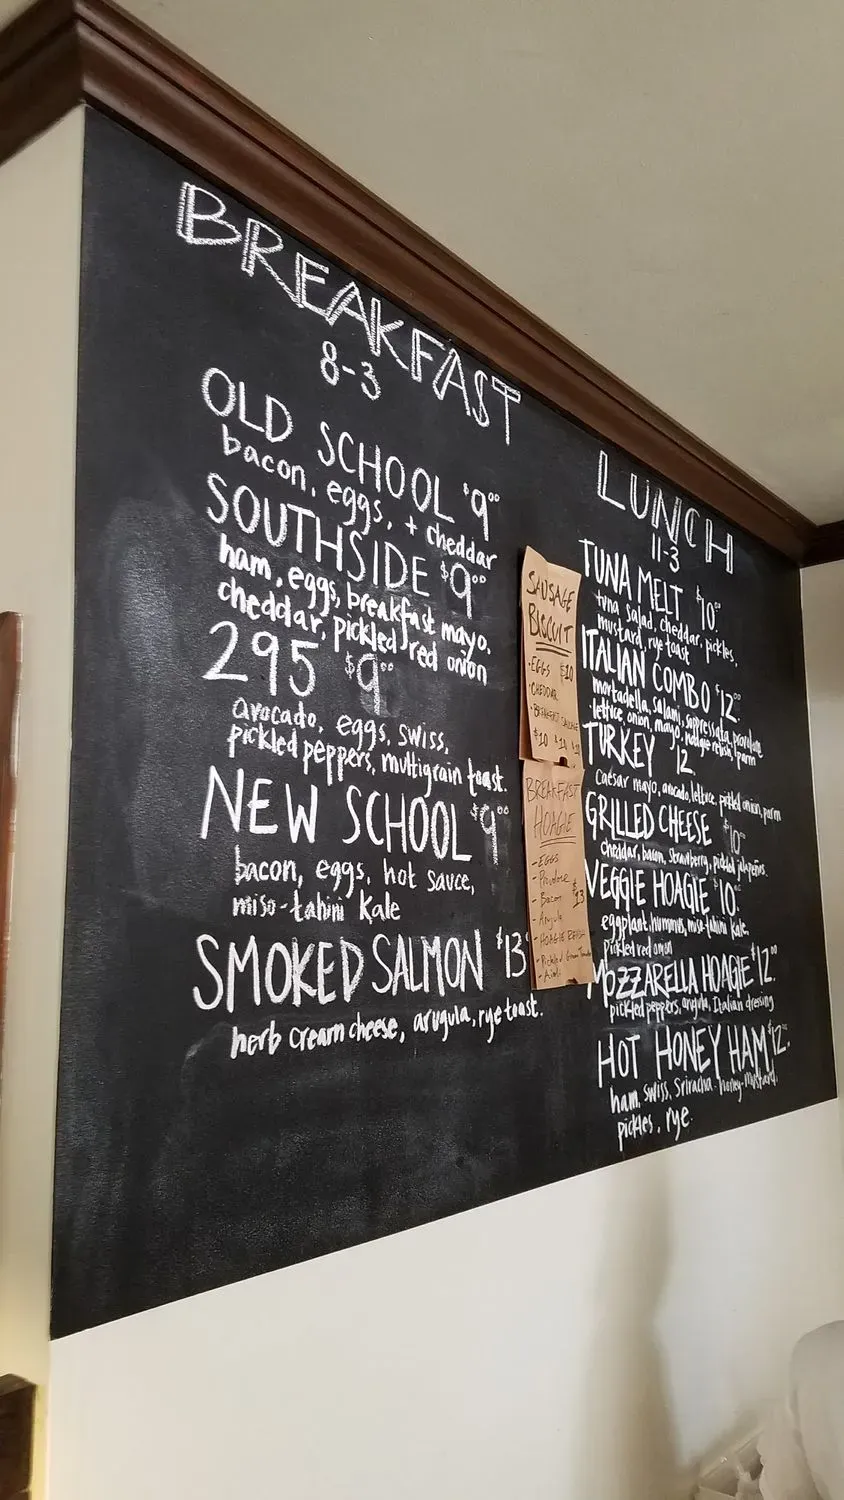 BREAKFAST
8-3
OLD SCHOOL $9.00
bacon, eggs, + cheddar
SOUTHSIDE $9.00
ham, eggs, breakfast mayo,
cheddar, pickled red onion
295 $9.00
avocado, eggs, swiss,
pickled peppers, multigrain toast.
NEW SCHOOL $9.00
bacon, eggs, hot sauce,
miso-tahini kale
SMOKED SALMON $13
herb cream cheese, arugula, rye toast.
SAUSAGE
BISCUIT
• EGGS $10
• CHEDDAR
• BREAKFAST SAUSAGE
$10
BREAKFAST
HOAGIE
- EGGS
- Provolone
- Bacon $13
- Arugula
- HOAGIE RELISH
- Pickled Green Tomato
- Aioli
LUNCH
11-3
TUNA MELT $10.00
tuna salad, cheddar, pickles,
mustard, rye toast
ITALIAN COMBO $12.00
mortadella, salami, soppressata, provolone
lettuce, onion, mayo, hoagie relish, parm
TURKEY 12.
caesar mayo, avocado, lettuce, pickled onion, parm
GRILLED CHEESE $10
cheddar, bacon, strawberry, pickled jalapeños
VEGGIE HOAGIE $10.
eggplant, hummus, miso-tahini kale,
pickled red onion
MOZZARELLA HOAGIE $12.00
pickled peppers, arugula, Italian dressing
HOT HONEY HAM $12.00
ham, swiss, Sriracha honey-mustard,
pickles, rye